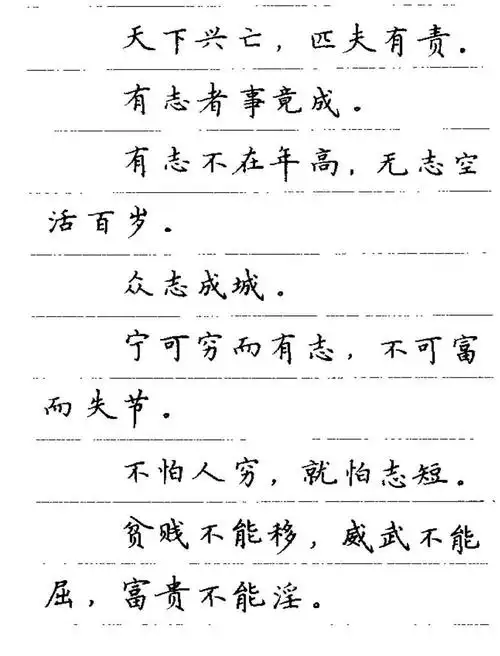 天下兴亡，匹夫有责.
有志者事竟成。
有志不在年高，无志空
活百岁。
众志成城。
宁可穷而有志，不可富
而失节。
不怕人穷，就怕志短.
贫贱不能移，威武不能
屈，富贵不能淫。